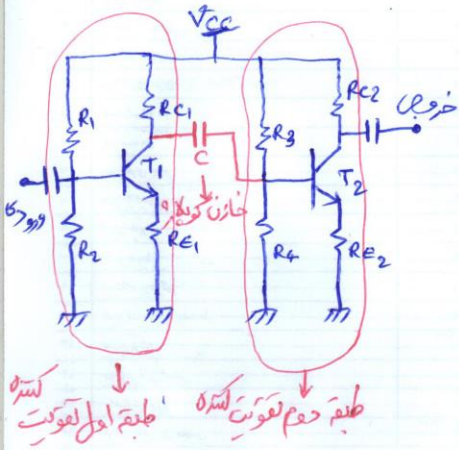 Vcc
R1
RC1
R3
RC2
خروجی
T1
C
T2
ورودی
خازن کوپلاژ
R2
RE1
R4
RE2
طبقه اول تقویت کننده
طبقه دوم تقویت کننده